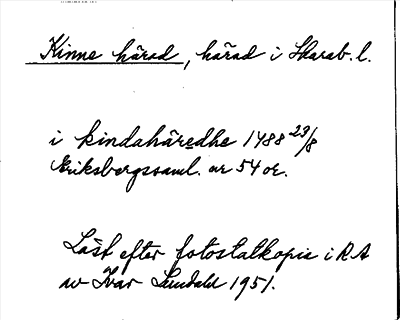 Kinne härad, härad i Skarab. l.
i kindahäredhe 1488 23/8
Eriksbergssaml. nr 54 or.
Läst efter fotostatkopia i RA
av Ivar Lundahl 1951.